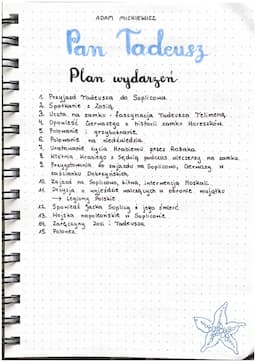 ADAM MICKIEWICZ
Pan Tadeusz
Plan wydarzeń
1. Przyjazd Tadeusza do Soplicowa.
2. Spotkanie z Zosią.
3. Uczta na zamku - fascynacja Tadeusza Telimeną.
4. Opowieść Gerwazego o historii zamku Horeszków.
5. Polowanie i grzybobranie.
6. Polowanie na niedźwiedzia.
7. Uratowanie życia Hrabiemu przez Robaka.
8. Kłótnia Hrabiego z Sędzią podczas wieczerzy na zamku.
9. Przygotowania do zajazdu na Soplicowo, Gerwazy w
zaścianku Dobrzyńskich.
10. Zajazd na Soplicowo, bitwa, interwencja Moskali.
11. Decyzja o wyjeździe walczących w obronie majątku
→ Legiony Polskie
12. Spowiedź Jacka Soplicy i jego śmierć.
13. Wojska napoleońskie w Soplicowie.
14. Zaręczyny Zosi i Tadeusza.
15. Polonez